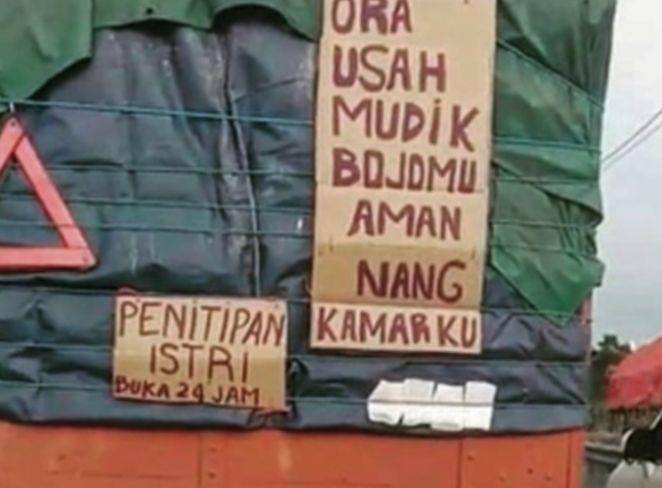 ORA
USAH
MUDIK
BOJOMU
AMAN
NANG
KAMARKU
PENITIPAN
ISTRI
BUKA 24 JAM